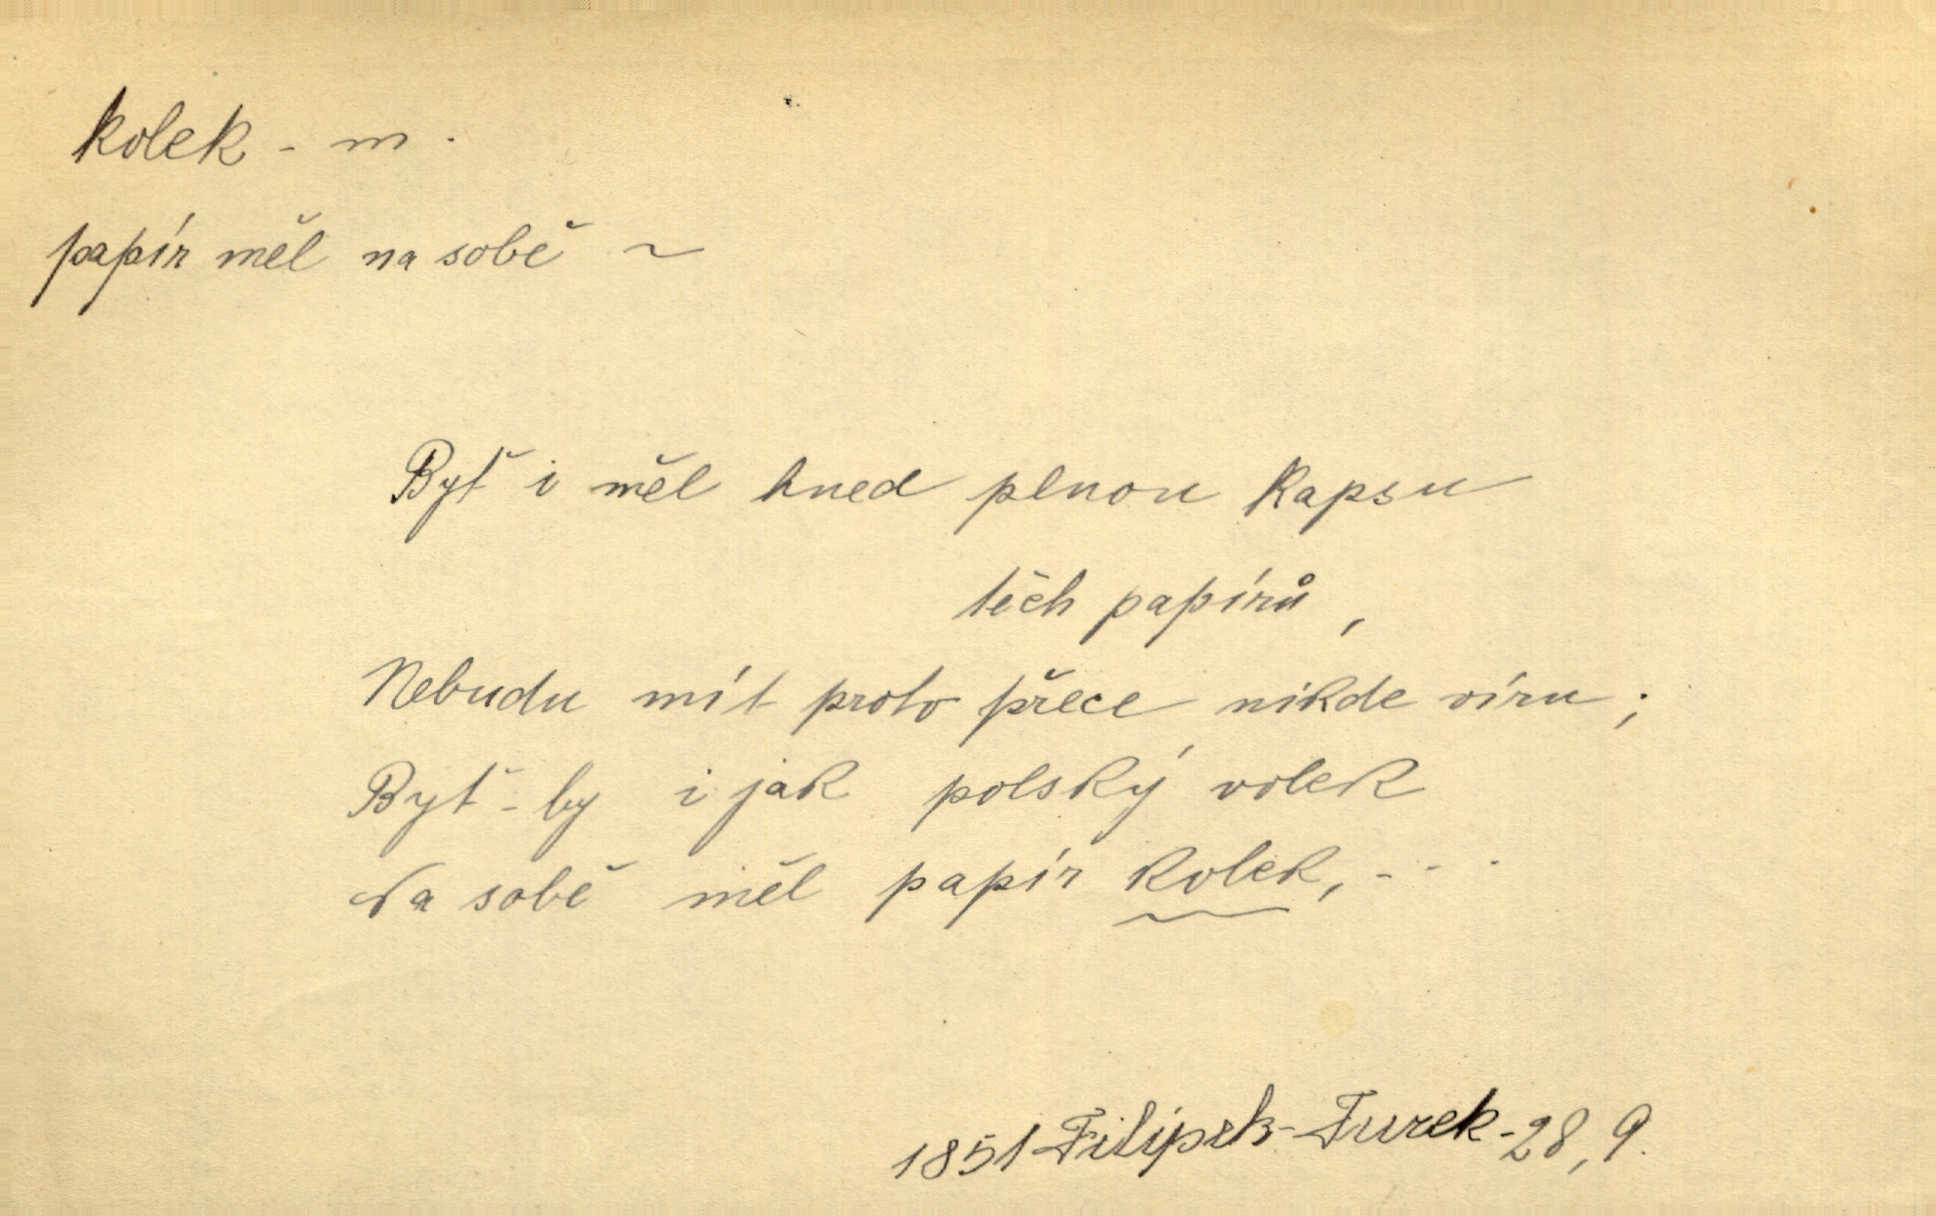 kolek - m.
papír měl na sobě ~
Byť i měl hned plnou kapsu
těch papírů,
Nebudu mít proto přece nikde víru;
Byť-by i jak polský volek
Na sobě měl papír kolek, - - -
1851 Filípek - Turek - 28, 9.